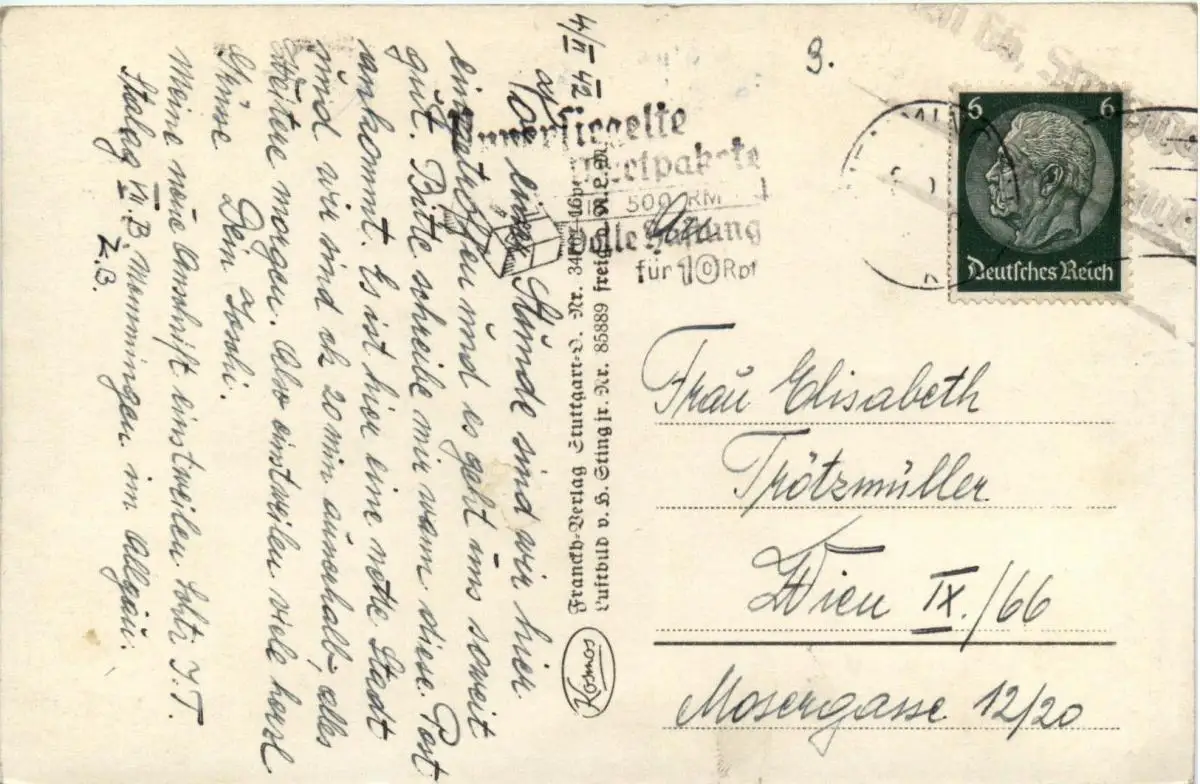 4/II 42
Vor einer Stunde sind wir hier
eingetroffen und es geht uns soweit
gut. Bitte schreibe mir wann diese Post
ankommt. Es ist hier eine nette Stadt
und wir sind ch 20 min ausserhalb, alles
weitere morgen. Also einstweilen viele herzl
Grüsse
Dein
Meine neue Anschrift einstweilen Sold. J.T.
Stalag VII.B, Memmingen im Allgäu.
z.B.
Franckh-Verlag Stuttgart-O. Nr.
Luftbild v. H. Sting jr. Nr. 85889 freig. d. R.L.M.
Kosmos
3.
Unversiegelte
Wertpakete
500 RM
volle Haftung
für 10 Rpf
6 6
Deutsches Reich
Frau Elisabeth
Trötzmüller
Wien IX./66
Mosergasse 12/20